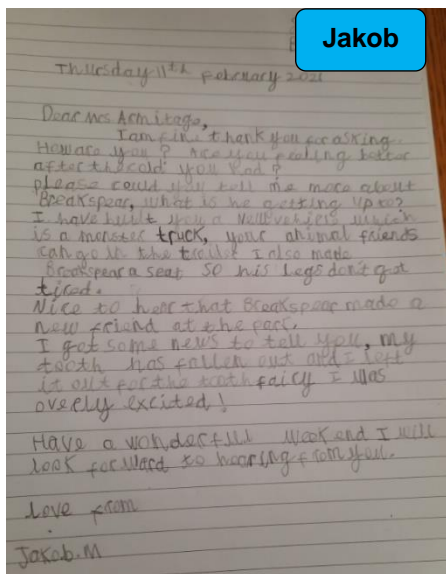 Jakob
Thursday 11th February 2021
Dear Mrs Armitage,
I am fine thank you for asking.
How are you? Are you feeling better
after the cold you had?
please could you tell me more about
Breakspear, what is he getting up to?
I have built you a new vehicle which
is a monster truck, your animal friends
can go in the trailer I also made
Breakspear a seat so his legs don't get
tired.
Nice to hear that Breakspear made a
new friend at the park.
I got some news to tell you, my
tooth has fallen out and I left
it out for the tooth fairy I was
overly excited!
Have a wonderfull weekend I will
look forward to hearing from you.
love from
Jakob.M